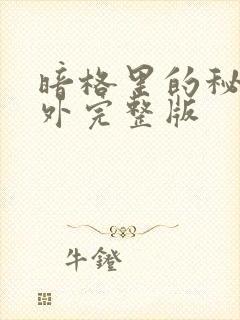 暗格里的秘
外完整版
牛鐙